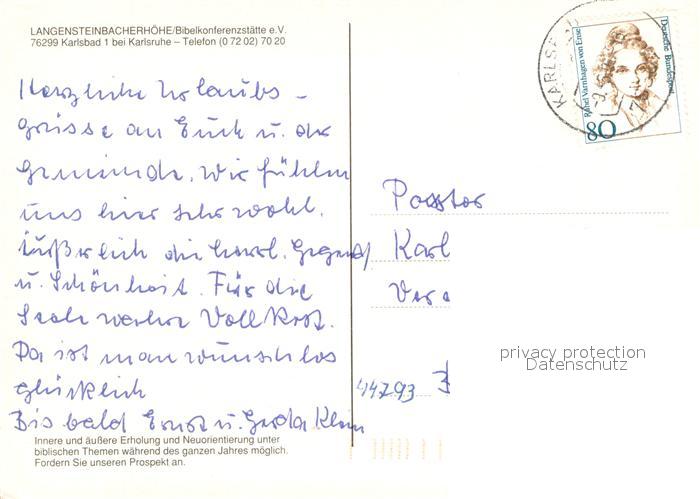 LANGENSTEINBACHERHÖHE/Bibelkonferenzstätte e.V.
76299 Karlsbad 1 bei Karlsruhe – Telefon (0 72 02) 70 20
Herzliche Urlaubs-
grüsse an Euch u. der
Gemeinde. Wir fühlen
uns hier sehr wohl.
Äußerlich die herrl. Gegend
u. Schönheit. Für die
Seele wahre Vollkost.
Da ist man wunschlos
glücklich
Bis bald Ernst u. Gerda Klein
Innere und äußere Erholung und Neuorientierung unter
biblischen Themen während des ganzen Jahres möglich.
Fordern Sie unseren Prospekt an.
KARLSBA
Rahel Varnhagen von Ense
Deutsche Bundespost
80
Pastor
Karl
44793
privacy protection
Datenschutz